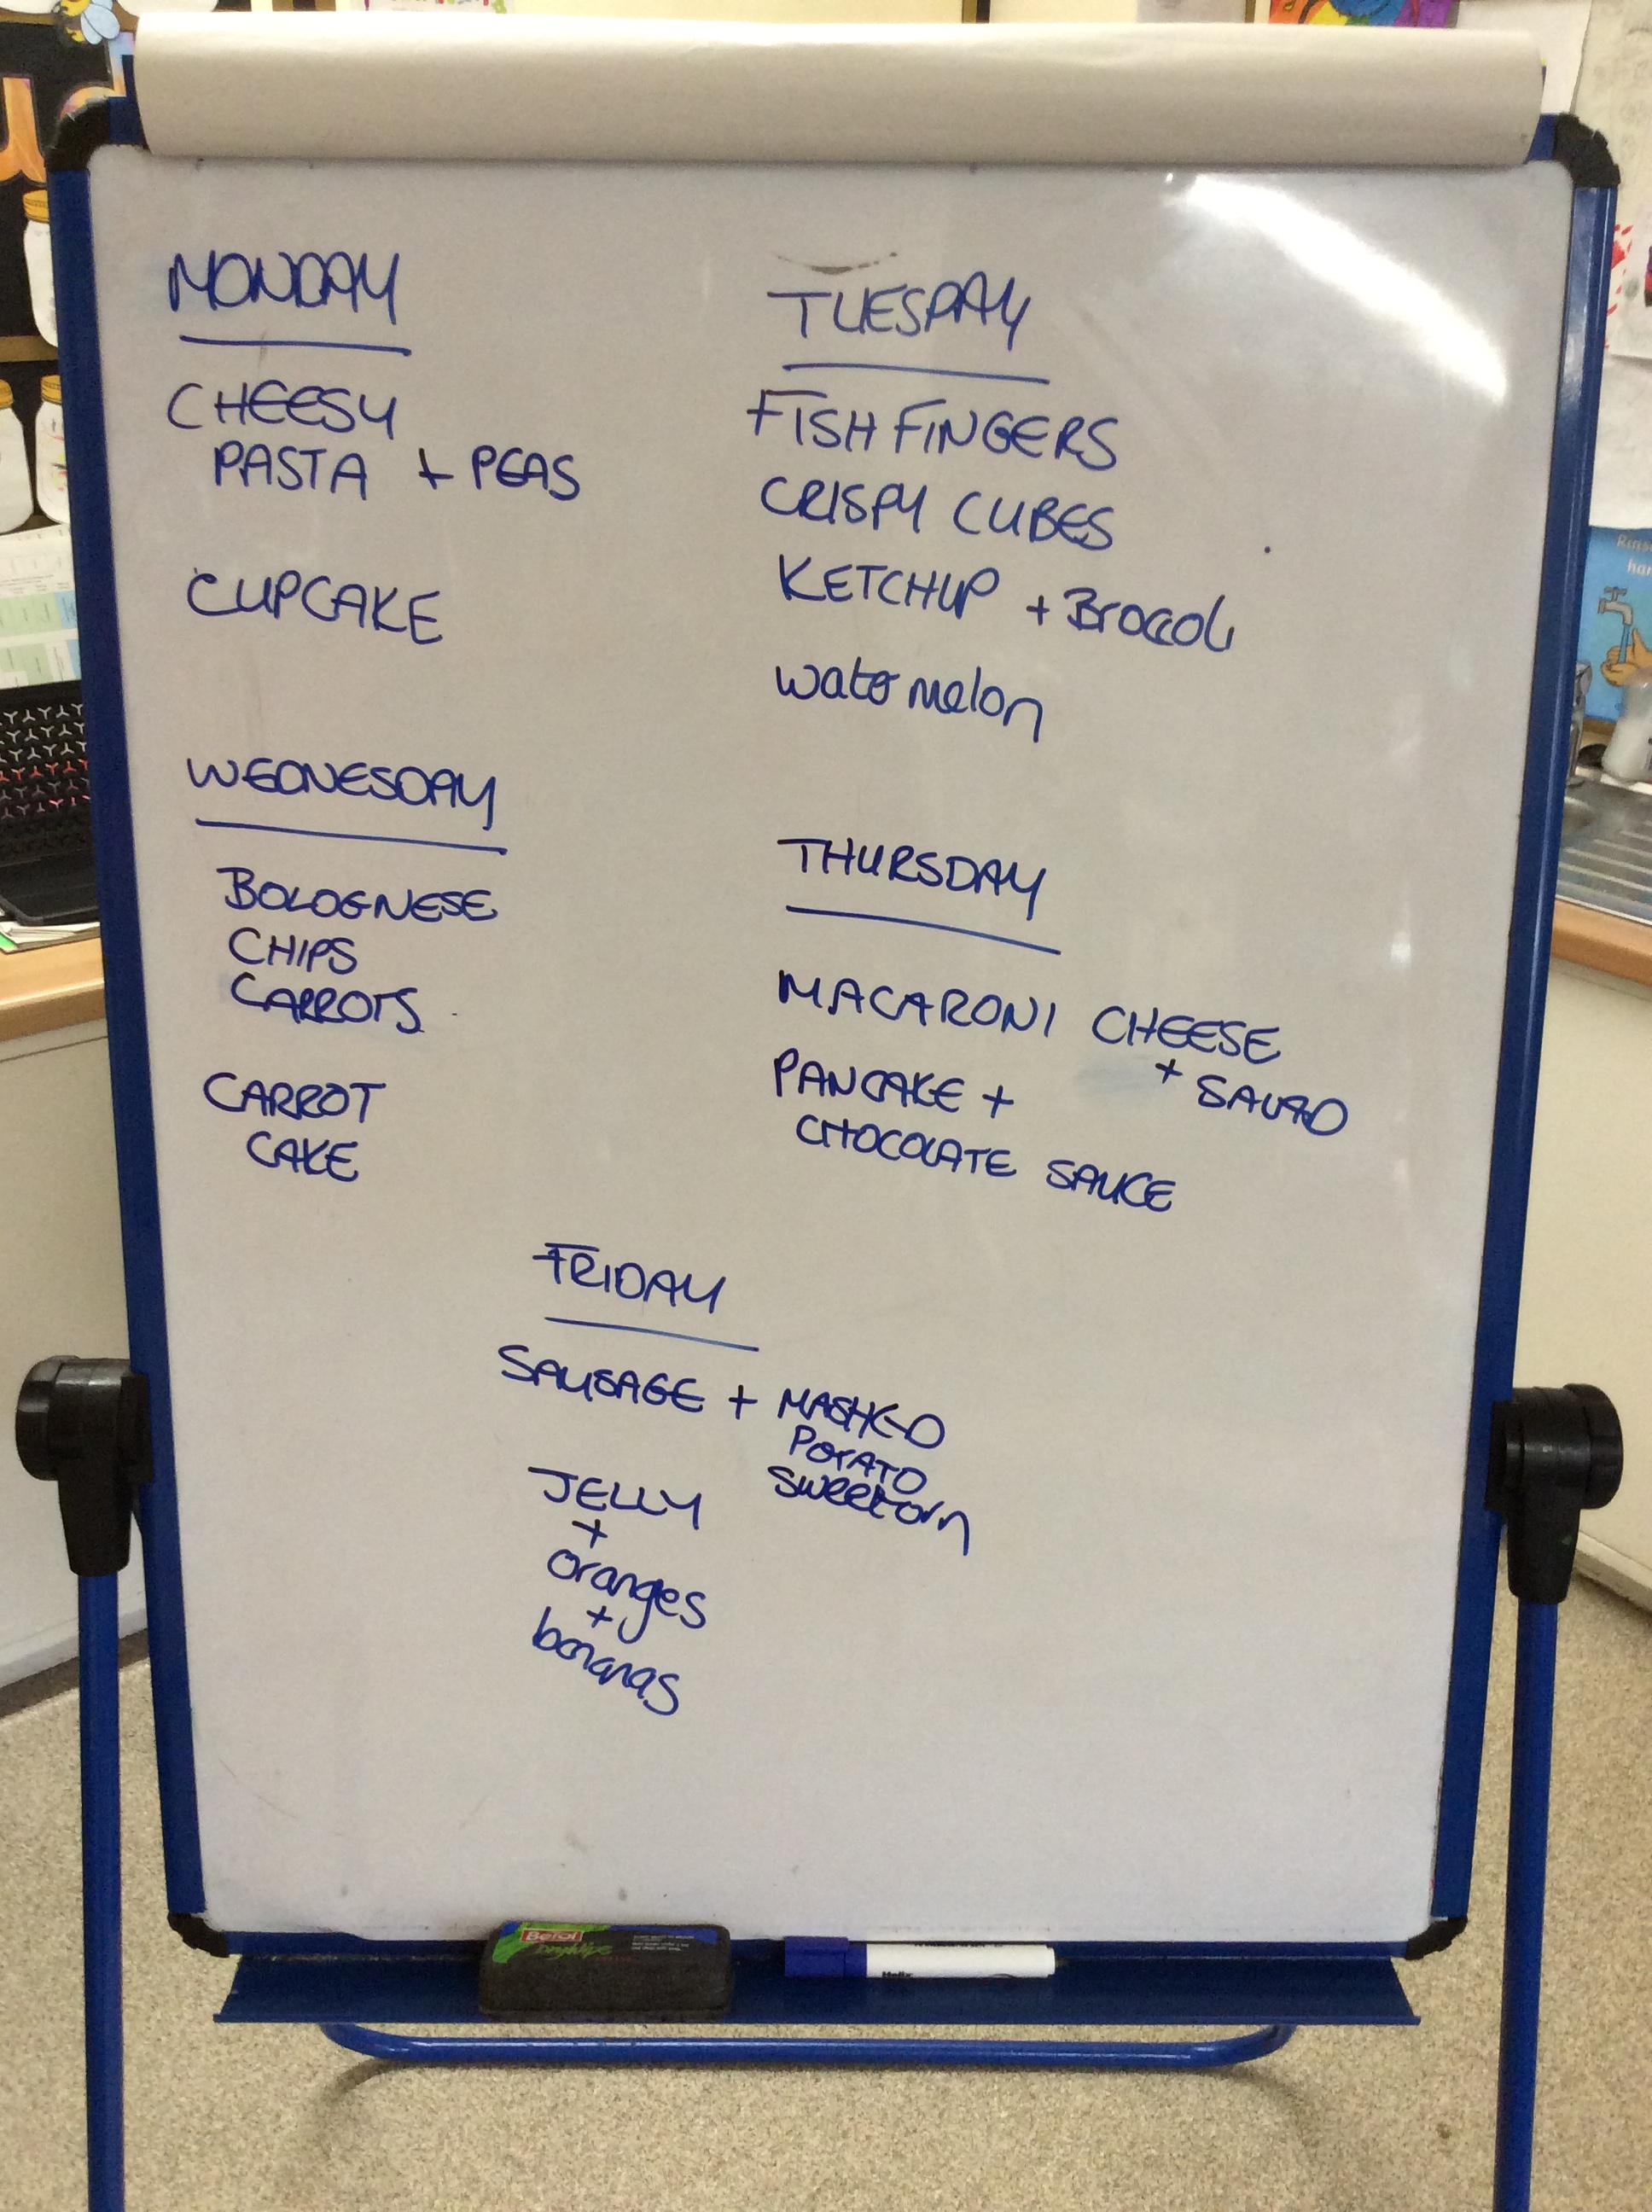 MONDAY
CHEESY
PASTA + PEAS
CUPCAKE
TUESDAY
FISH FINGERS
CRISPY CUBES
KETCHUP + Broccoli
watermelon
WEDNESDAY
BOLOGNESE
CHIPS
CARROTS
CARROT
CAKE
THURSDAY
MACARONI CHEESE
+ SALAD
PANCAKE +
CHOCOLATE SAUCE
FRIDAY
SAUSAGE + MASHED
POTATO
Sweetcorn
JELLY
+
oranges
+
bananas
Berol
Helix